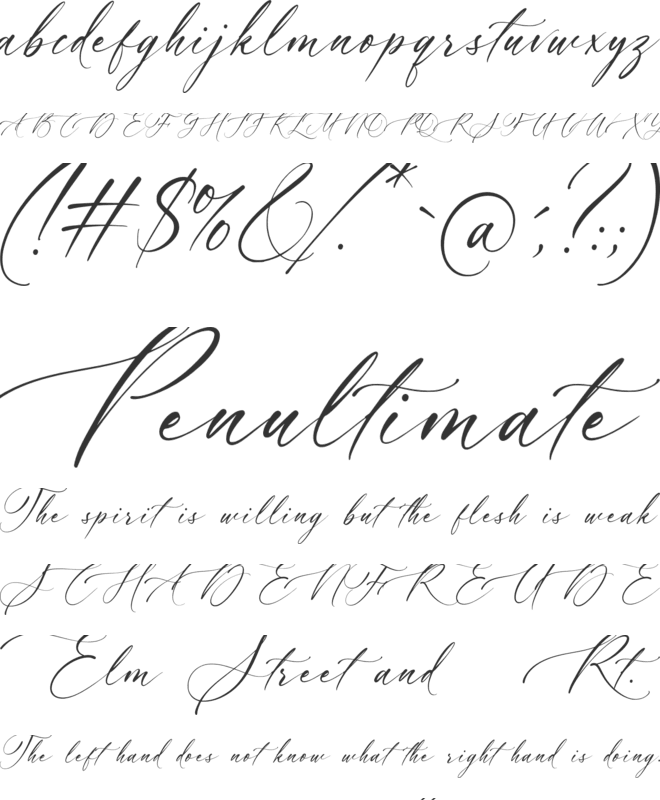 abcdefghijklmnopqrstuvwxyz
ABCDEFGHIJKLMNOPQRSTUVWXY
(!#$%&/.*`@´;?:;)
Penultimate
The spirit is willing but the flesh is weak
SCHADENFREUDE
Elm Street and Rt.
The left hand does not know what the right hand is doing.